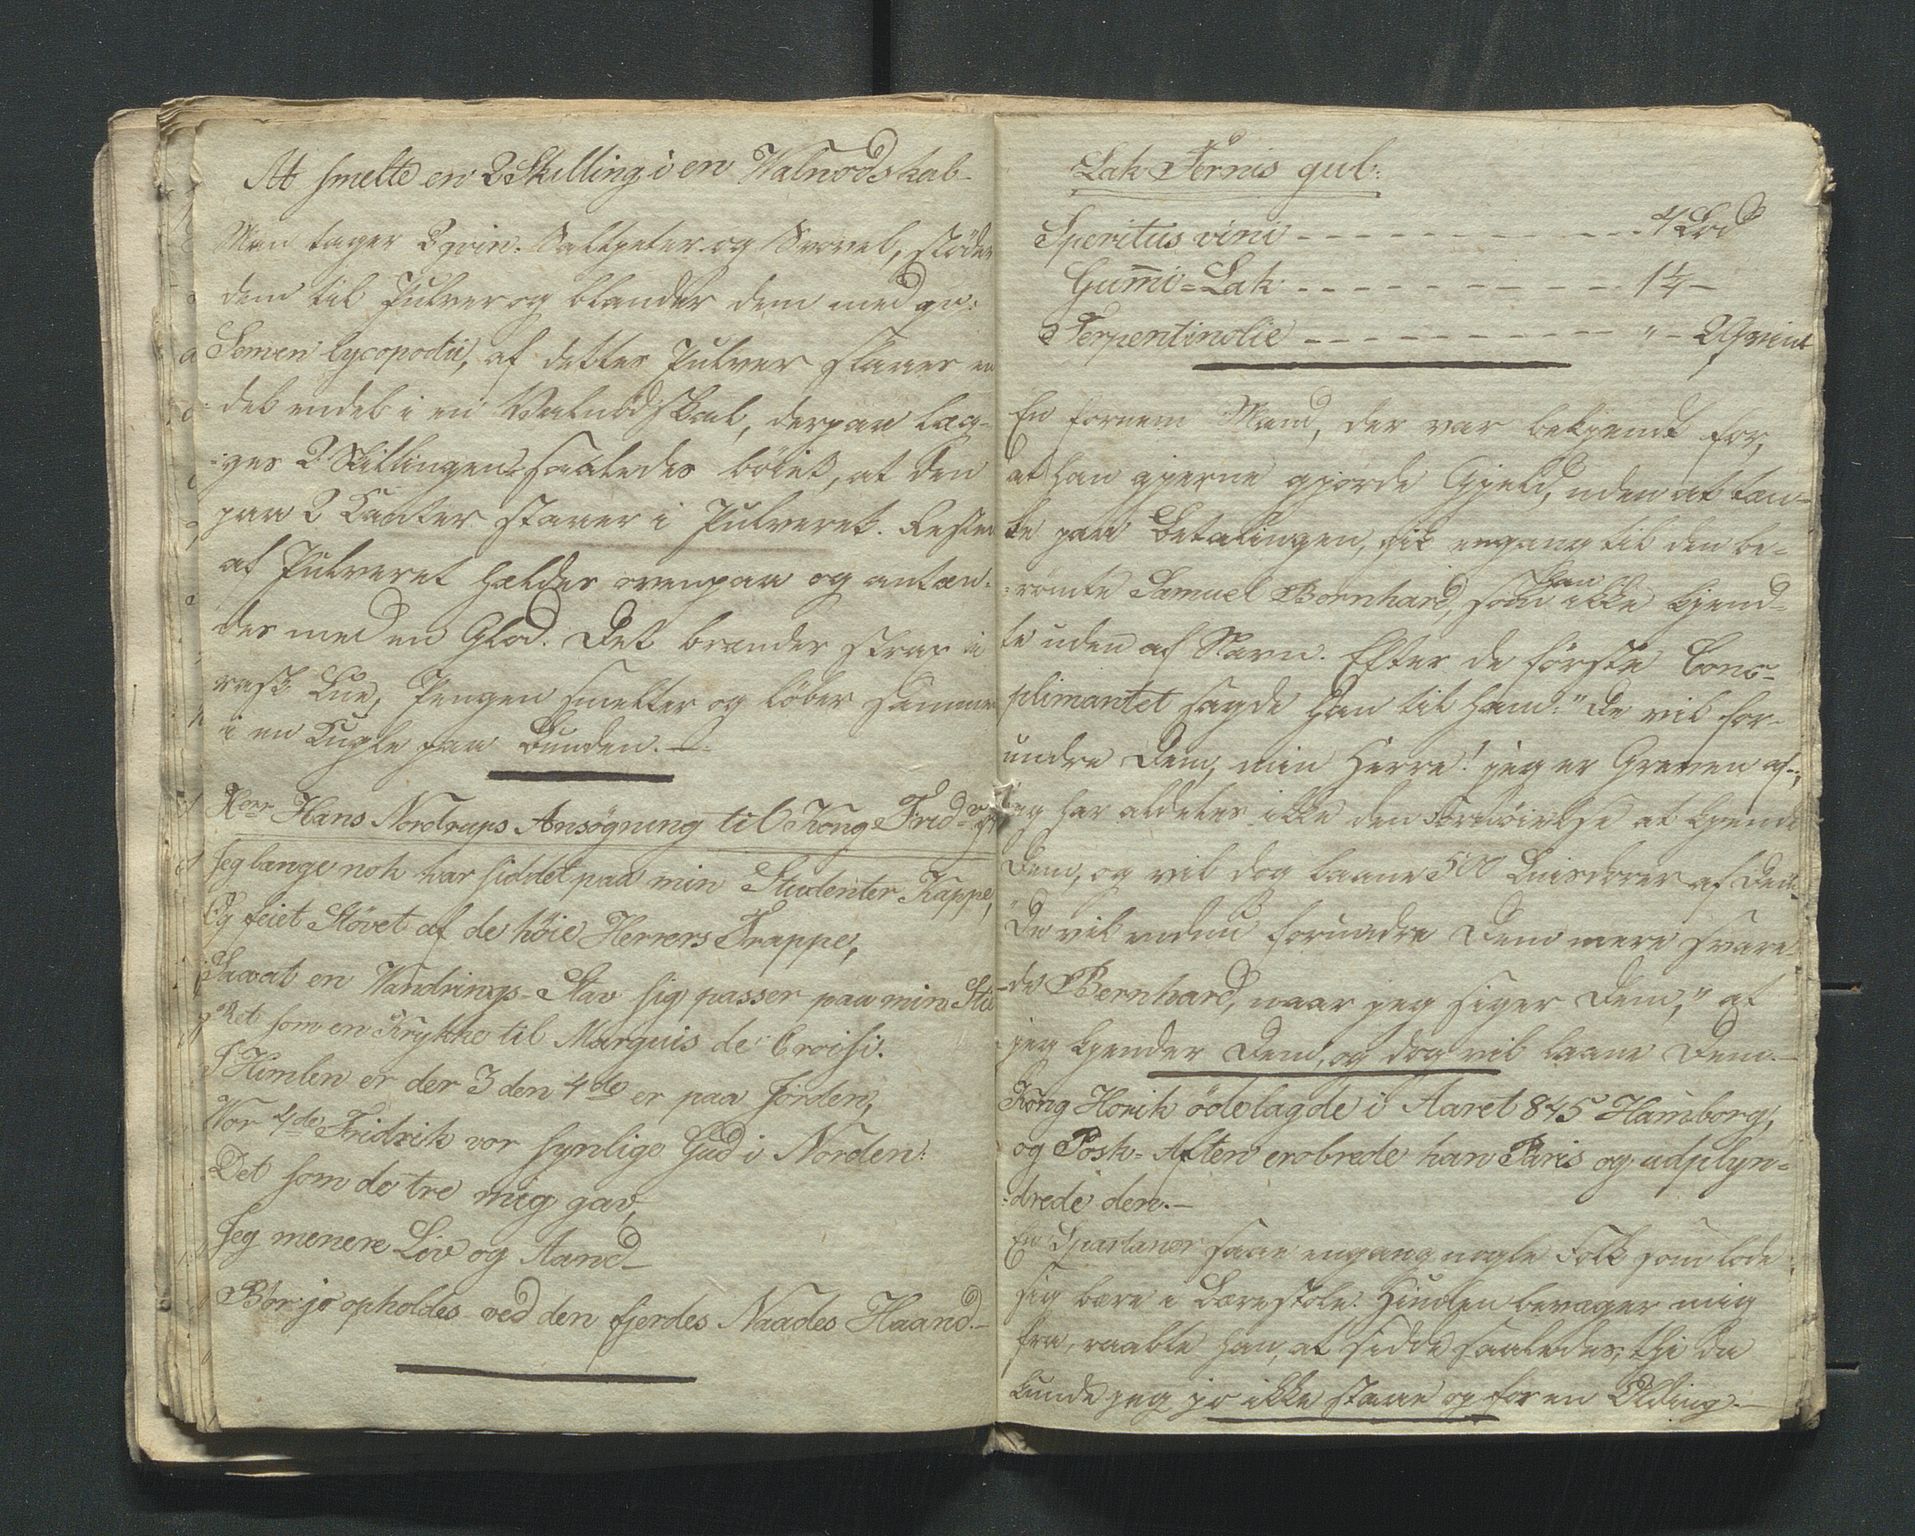 At smelte en 2 Skilling i en Valnødskal
Man tager 2 qvin. Saltpeter og Svovel, støder
dem til Pulver og blander dem med qv:
Semen lycopodii, af dette Pulver stæes en
del endel i en Valnødskal, derpaa læg-
ges 2 Skillingen saaledes böiet, at den
paa 2 Kanter staaer i Pulveret. Resten
af Pulveret hældes ovenpaa og antæn-
des med en Glød. Det brænder strax i
rask Lue, Pengen smelter og løber sammen
i en Kugle paa Bunden.
Herr Hans Nordrups Ansøgning til Kong Frid
Jeg længe nok har siddet paa min Studenter Kappe,
Og feiet Støvet af de höie Herrers Trappe,
Saavat en Vandrings-Stav sig passer paa min Stie
Ret som en Krykke til Marquis de Croisi.
I Himlen er der 3 den 4de er paa Jorden,
Vor 4de Fridrik vor synlige Gud i Norden:
Det som de tre mig gav,
Jeg menere Liv og Aand
Bør jo opholdes ved den fjerdes Naades Haand
Lak Fernis gul:
Speritus vini 4 Lod
Gummi=Lak 1 1/4
Terpentinolie " 2 Qvint
En fornem Mand, der var bekjendt for,
at han gjerne gjorde Gjeld, uden at tæn-
ke paa Betalingen, gik engang til den be-
römte Samuel Bernhard, som han ikke kjend-
te uden af Navn. Efter de første Com-
plimantet sagde han til ham: "De vil for-
undre Dem, min Herre! jeg er Greven af-,
jeg har aldeles ikke den Fornöielse at kjende
Dem, og vil dog laane 500 Luisdorer af Dem.
"De vil endnu forundre Dem mere svare-
de Bernhard, naar jeg siger Dem," at
jeg kjender Dem, og dog vil laane Dem.—
Kong Horik ödelagde i Aaret 845 Hamborg,
og Posk-Aften erobrede han Paris og udplyn-
drede den.—
En Spartaner saae engang nogle Folk som lode
sig bære i Bærestole. Himlen bevare mig
fra, raabte han, at sidde saaledes, thi da
kunde jeg jo ikke staae op for en Olding.—